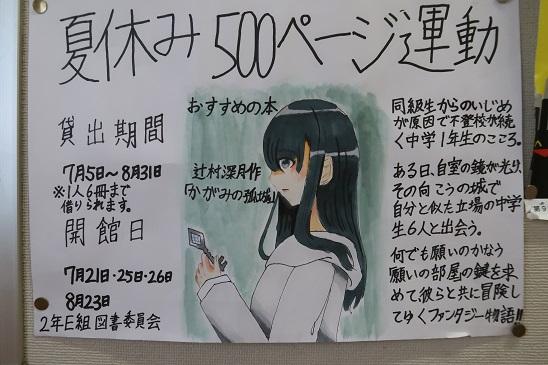 夏休み500ページ運動
貸出期間
7月5日～8月31日
※1人6冊まで
借りられます。
開館日
7月21日・25日・26日
8月23日
2年E組 図書委員会
おすすめの本
辻村深月作
「かがみの孤城」
同級生からのいじめ
が原因で不登校が続
く中学1年生のこころ。
ある日、自室の鏡が光り、
その向こうの城で
自分と似た立場の中学
生6人と出会う。
何でも願いのかなう
願いの部屋の鍵を求
めて彼らと共に冒険し
てゆくファンタジー物語!!